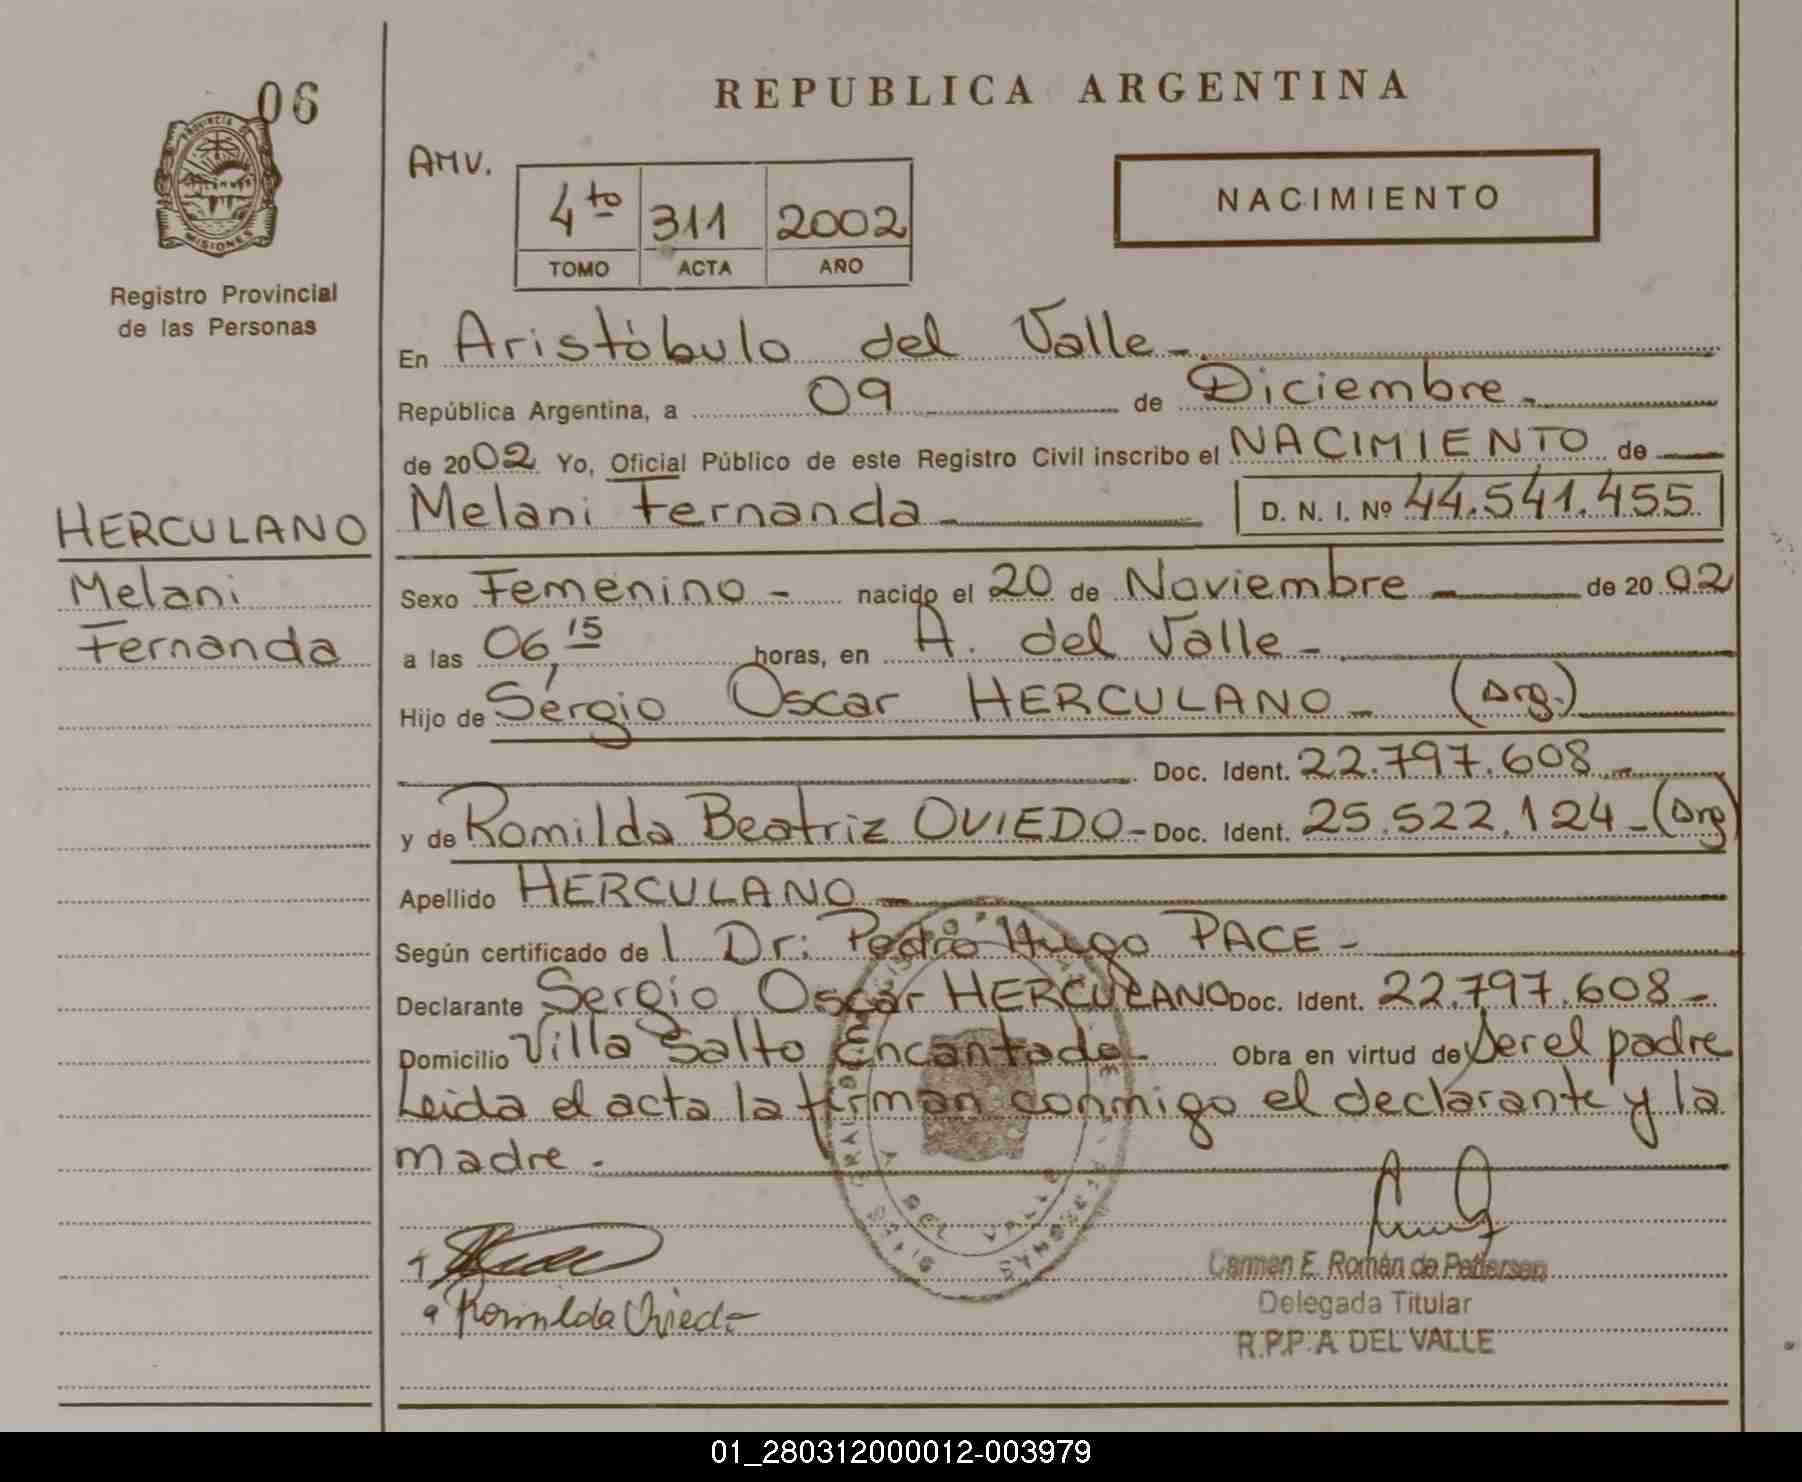 06
PROVINCIA DE
MISIONES
Registro Provincial
de las Personas
HERCULANO
Melani
Fernanda
REPUBLICA ARGENTINA
AMV.
4to 311 2002
TOMO ACTA AÑO
NACIMIENTO
En Aristóbulo del Valle-
República Argentina, a 09 de Diciembre-
de 2002 Yo, Oficial Público de este Registro Civil inscribo el NACIMIENTO de
Melani Fernanda - D. N. I. Nº 44.541.455
Sexo Femenino - nacido el 20 de Noviembre - de 20 02
a las 06,15 horas, en A. del Valle -
Hijo de Sergio Oscar HERCULANO - (Arg.)
Doc. Ident. 22.797.608 -
y de Romilda Beatriz OVIEDO - Doc. Ident. 25.522.124 - (Arg)
Apellido HERCULANO -
Según certificado de l Dr: Pedro Hugo PACE -
Declarante Sergio Oscar HERCULANO Doc. Ident. 22.797.608 -
Domicilio Villa Salto Encantado - Obra en virtud de Ser el padre
Leida el acta la firman conmigo el declarante y la
madre -
Romilda Oviedo
Carmen E. Román de Pettersen
Delegada Titular
R.P.P. A DEL VALLE
A DEL VALLE
01_280312000012-003979